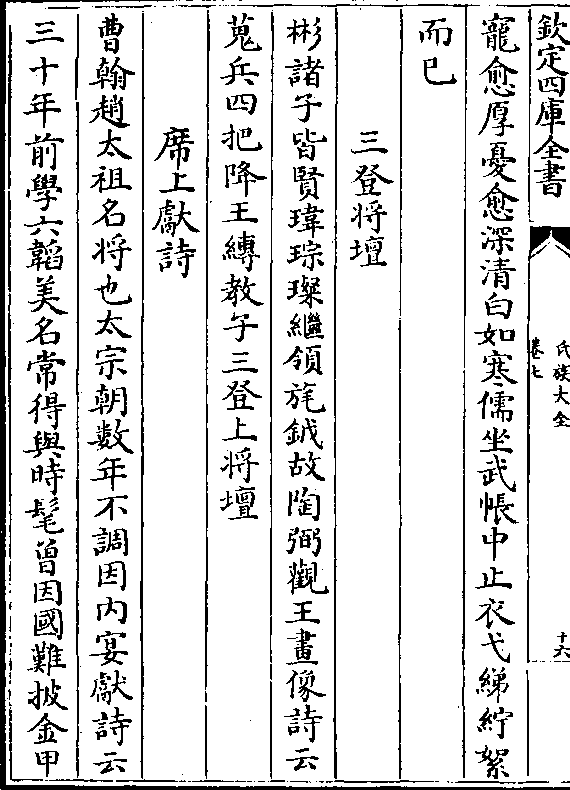 欽定四庫全書
氏族大全
卷七
十六
寵愈厚憂愈深清白如寒儒坐武帳中止衣弋綈紵絮
而已
三登将壇
彬諸子皆賢瑋琮璨繼領旄鉞故陶弼觀王畫像詩云
蒐兵四把降王縛教子三登上将壇
席上獻詩
曹翰趙太祖名将也太宗朝數年不調因内宴獻詩云
三十年前學六韜美名常得與時髦曾因國難披金甲